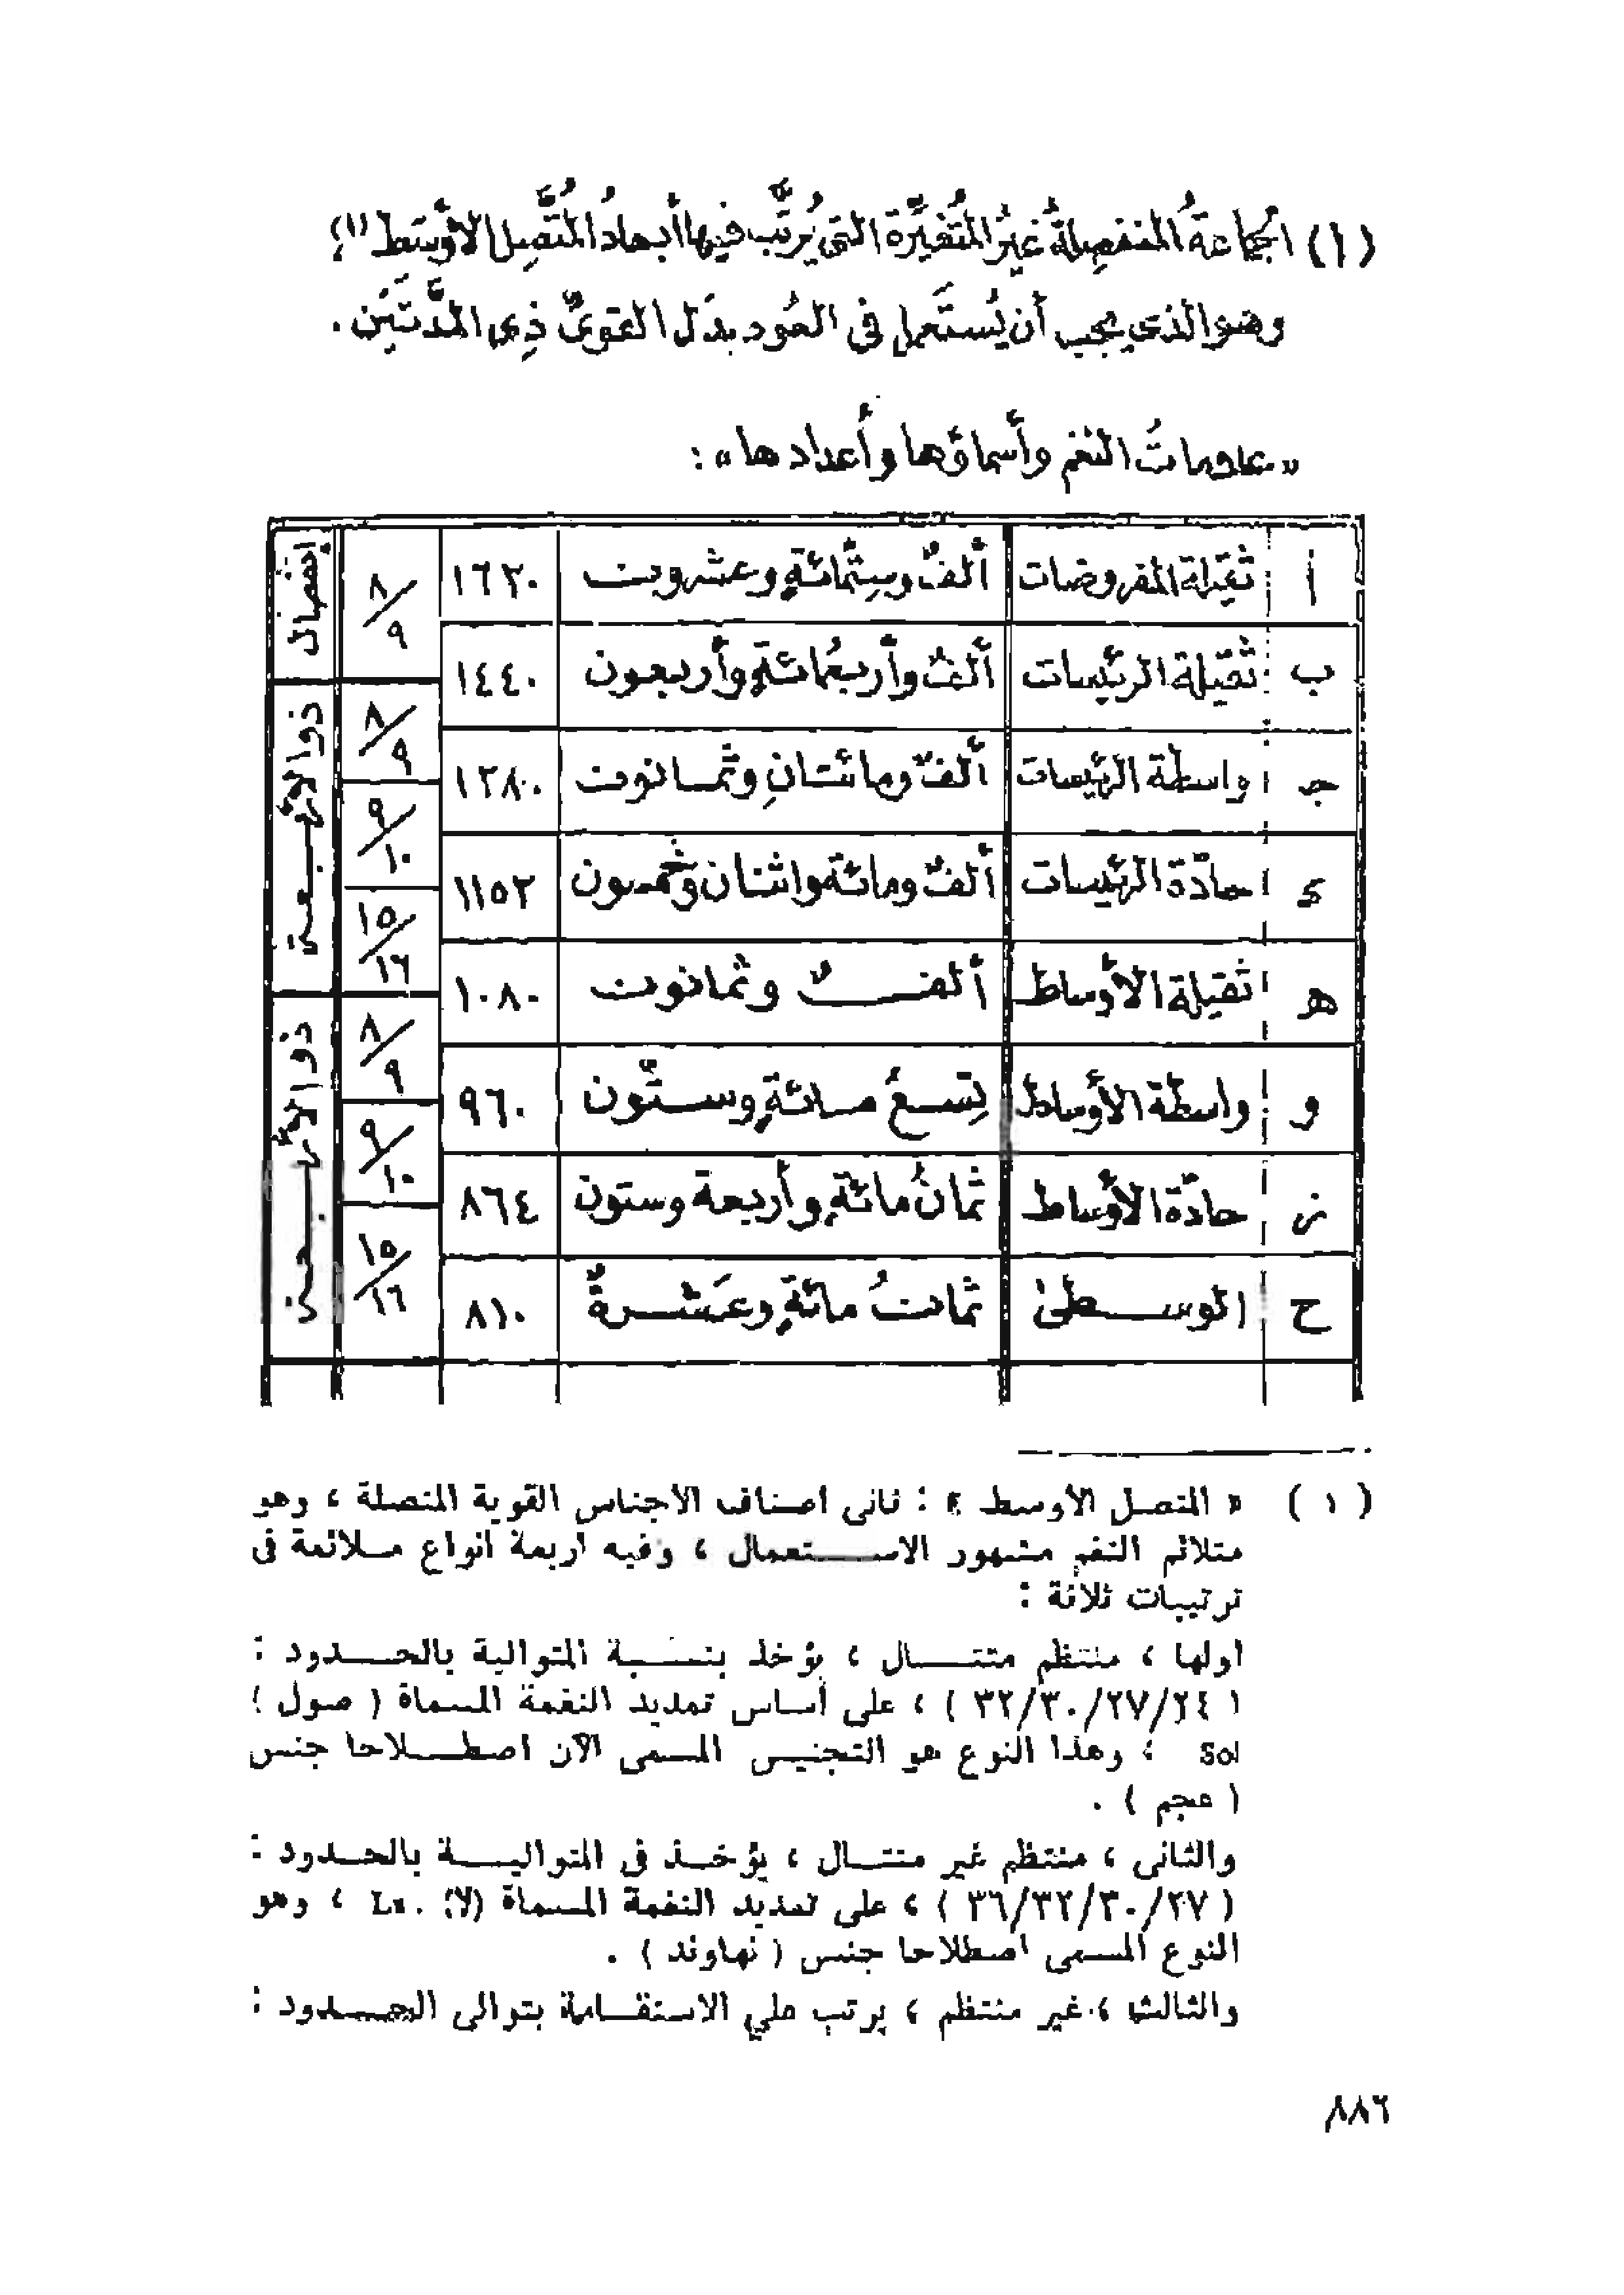 (١) الجماعةُ المنفصِلةُ غيرُ المُتغيِّرة التى يُرتَّب فيها أبعادُ المُتَّصِل الأوْسَط (١)؛
وهو الذى يجب أن يُستَعمل فى العُود بدَل القوىّ ذِى المدَّتَين .
«علامات النغم وأسماؤها وأعدادها» :
ا ثقيلة المفروضات ألفٌ وسِتُّمائةٍ وعشرون ١٦٢٠ ٨/٩ إنفصال
ب ثقيلة الرئيسات ألفٌ وأربعُمائةٍ وأربعون ١٤٤٠ ٨/٩ ذو الأربعة
جـ واسطة الرئيسات ألفٌ ومائتانِ وثمانون ١٢٨٠ ٩/١٠
د حادّة الرئيسات ألفٌ ومائة واثنان وخمسون ١١٥٢ ١٥/١٦
هـ ثقيلة الأوساط ألفٌ وثمانون ١٠٨٠ ٨/٩ ذو الأربعة
و واسطة الأوساط تِسعُ مائةٍ وستّون ٩٦٠ ٩/١٠
ز حادّة الأوساط ثمانُ مائةٍ وأربعة وستون ٨٦٤ ١٥/١٦
ح الوسطىٰ ثمانُ مائةٍ وعَشرةٌ ٨١٠
(١) « المتصل الأوسط » : ثانى اصناف الأجناس القوية المتصلة ، وهو
متلائم النغم مشهور الاستعمال ، وفيه اربعة انواع ملائمة فى
ترتيبات ثلاثة :
اولها ، منتظم متتال ، يؤخذ بنسبة المتوالية بالحدود :
( ٣٢/٣٠/٢٧/٢٤ ) ، على أساس تمديد النغمة المسماة ( صول )
Sol ، وهذا النوع هو التجنيس المسمى الآن اصطلاحا جنس
( عجم ) .
والثانى ، منتظم غير متتال ، يؤخذ فى المتوالية بالحدود :
( ٣٦/٣٢/٣٠/٢٧ ) ، على تمديد النغمة المسماة (لا) La. ، وهو
النوع المسمى اصطلاحا جنس ( نهاوند ) .
والثالث ، غير منتظم ، يرتب على الاستقامة بتوالى الحدود :
٨٨٦